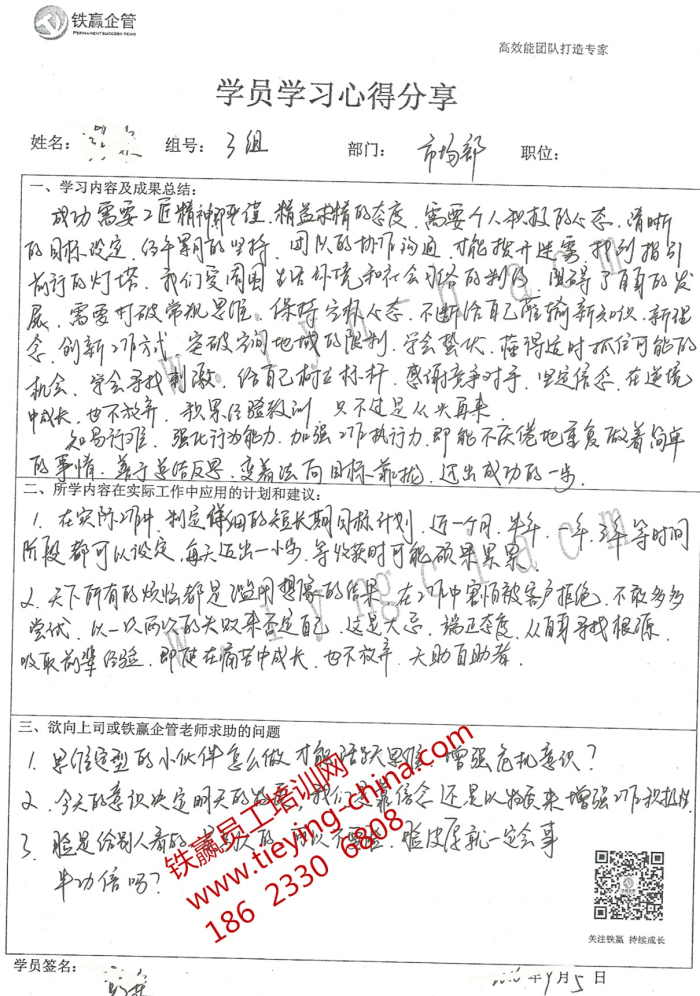 铁赢企管
PERMANENT SUCCESS TEAM
高效能团队打造专家
学员学习心得分享
姓名： 组号：3组 部门：市场部 职位：
一、学习内容及成果总结：
成功需要工匠精神 精益求精的态度、需要个人积极的心态、清晰
的目标设定、经年累月的坚持、团队的协作沟通，才能拨开迷雾，找到指引
前行的灯塔。我们受周围生活环境和社会网络的制约，阻碍了自身的发
展，需要打破常规思维、保持空杯心态、不断给自己灌输新知识、新理
念、创新工作方式、突破空间地域的限制、学会蛰伏、懂得适时抓住可能的
机会、学会寻找刺激，给自己树立标杆，感谢竞争对手，坚定信念，在逆境
中成长，也不放弃，积累经验教训，只不过是从头再来
知易行难，强化行为能力，加强工作执行力，即能不厌倦地重复做着简单
的事情，善于总结反思，变着法向目标靠拢，迈出成功的一步。
二、所学内容在实际工作中应用的计划和建议：
1、在实际工作中，制定详细的短长期目标计划，近一个月、半年、一年、三年等时间
阶段都可以设定，每天迈出一小步，等收获时可能硕果累累
2、天下所有的烦恼都是滥用想象的结果，在工作中害怕被客户拒绝，不敢多多
尝试，以一次两次的失败来否定自己，这是大忌，端正态度，从自身寻找根源，
吸取前辈经验，即使在痛苦中成长，也不放弃，天助自助者。
三、欲向上司或铁赢企管老师求助的问题
1、思维定型的小伙伴怎么做才能 思维，增强危机意识？
2、今天的意识决定明天的 ，我们 靠信念还是以物质来增强工作积极性
3、脸是给别人看的， 脸皮厚就一定会事
半功倍吗？
铁赢员工培训网
www.tieying-china.com
186 2330 6808
关注铁赢 持续成长
学员签名： 年9月5日